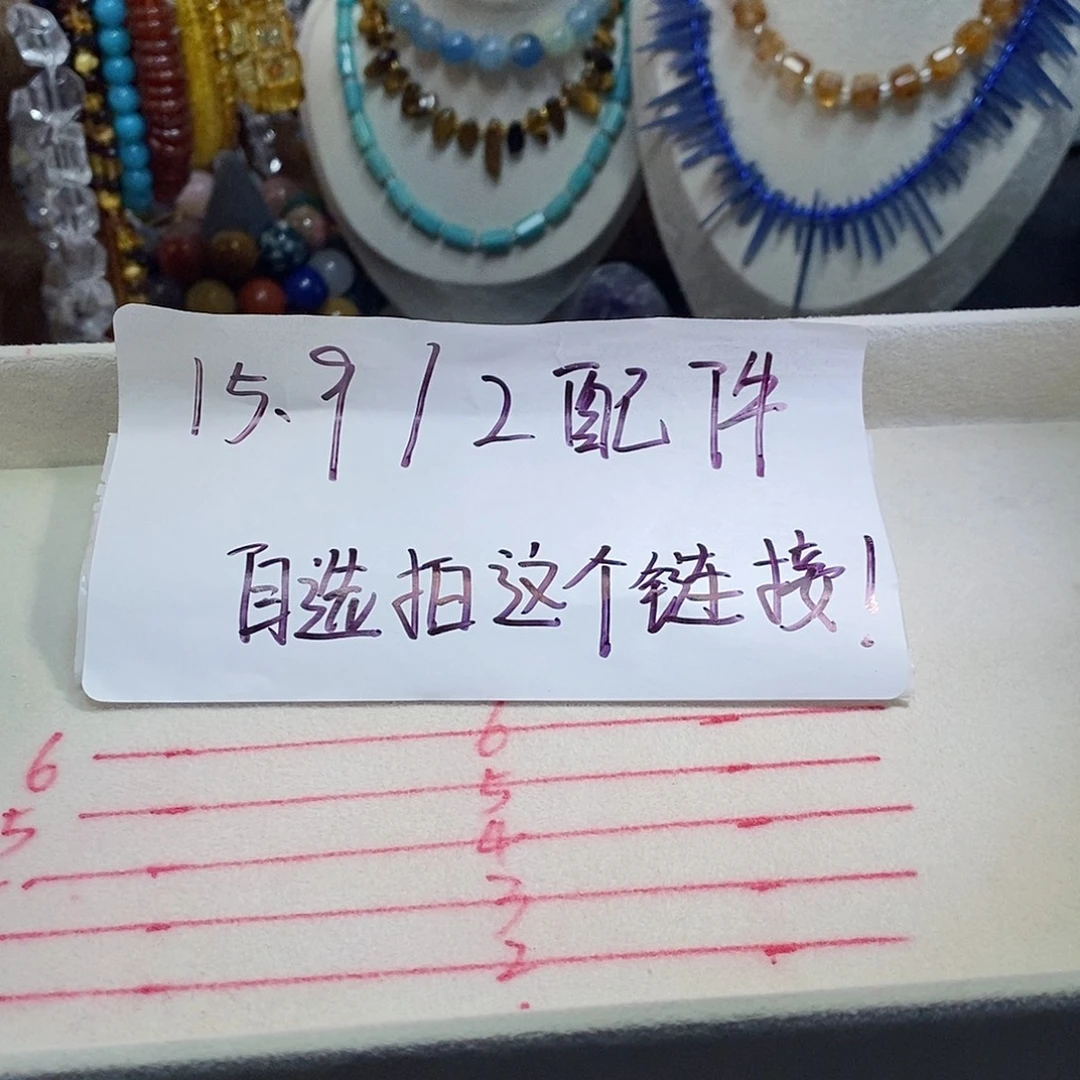 15.9/2配件
自选拍这个链接!
6 6
5 5
4
3
2